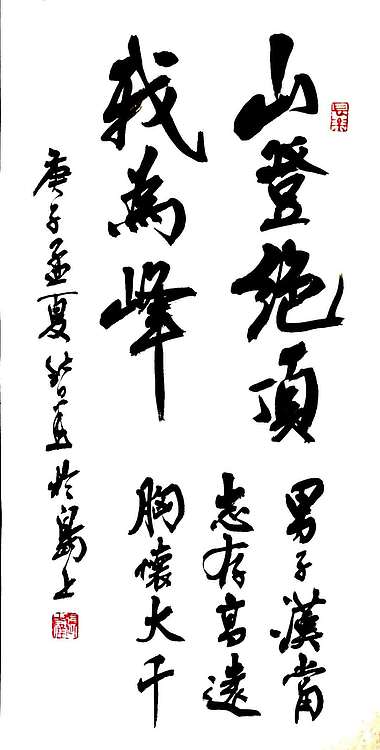 山登絶頂
我為峰
男子漢當
志存高遠
胸懷大千
庚子孟夏於島上